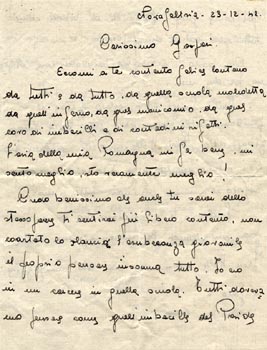 23-12-42.
Carissimo Gaspari
Eccomi a te contento felice lontano
da tutti e da tutto, da quella scuola maledetta
da quell'inferno, da quel manicomio, da quel
coro di imbecilli e di contadini rifatti.
L'aria della mia Romagna mi fa bene, mi
sento meglio, veramente meglio!
Credo benissimo che anche tu sarai dello
stesso parere ti sentirai più libero contento, non
lo slancio l'esuberanza giovanile
il proprio pensiero insomma tutto. Io ero
in un carcere in quella scuola. Tutti
pensare come quell'imbecille del Preside